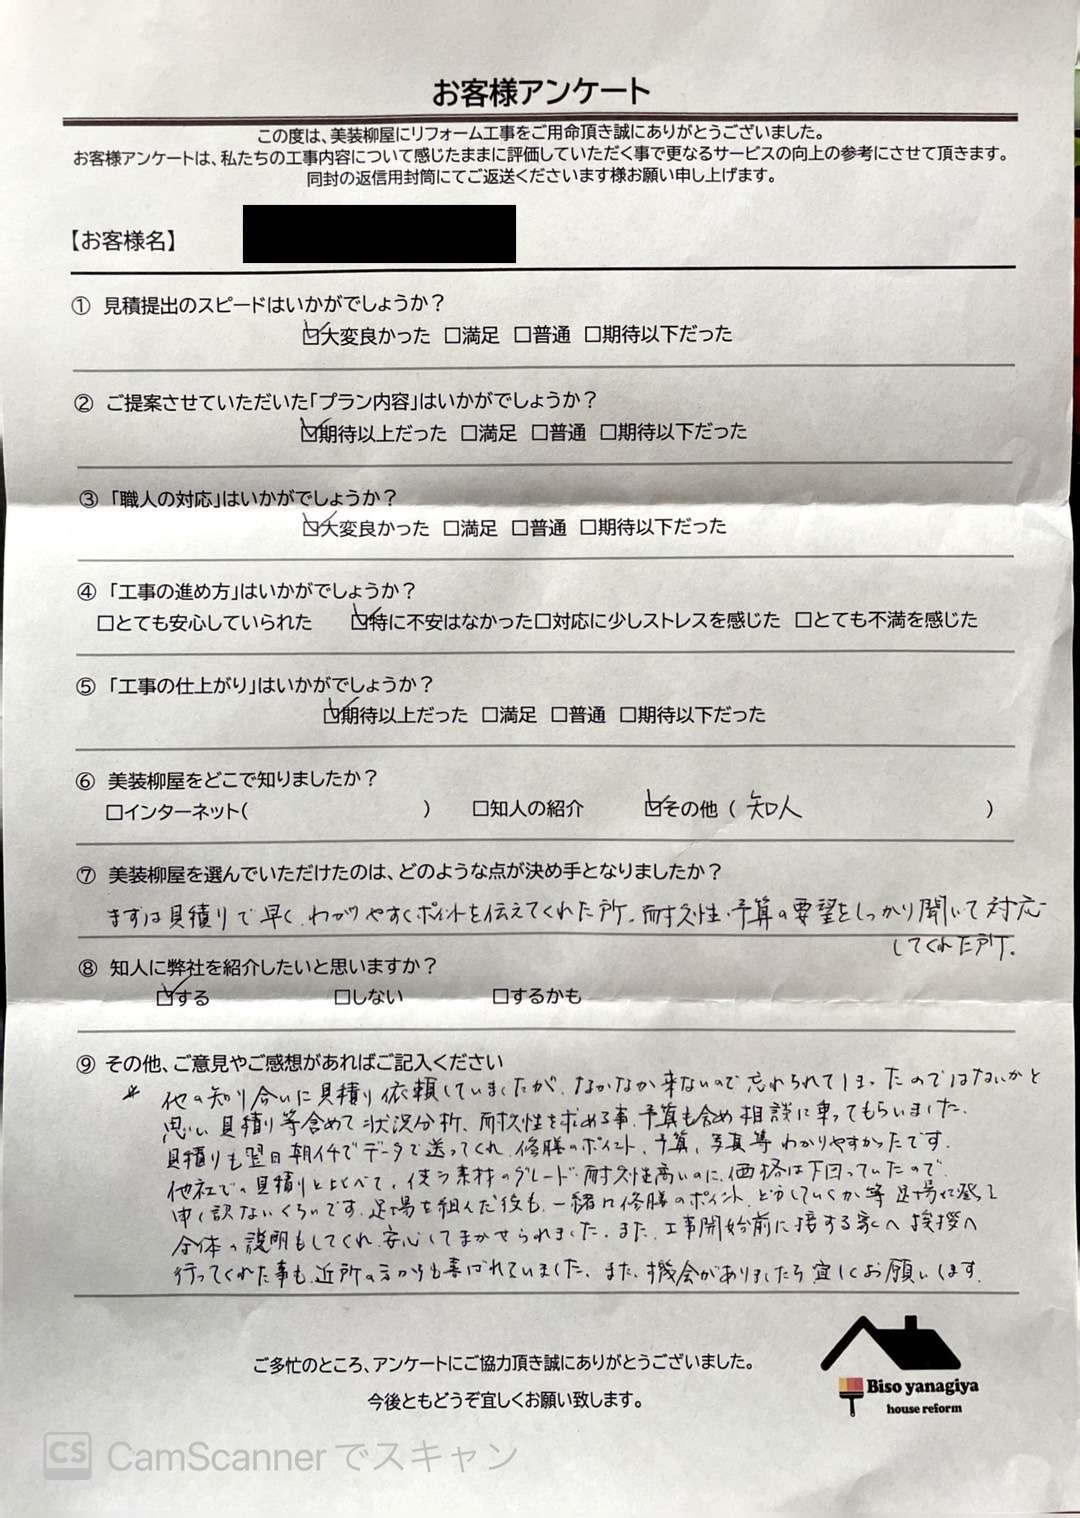 お客様アンケート
この度は、美装柳屋にリフォーム工事をご用命頂き誠にありがとうございました。
お客様アンケートは、私たちの工事内容について感じたままに評価していただく事で更なるサービスの向上の参考にさせて頂きます。
同封の返信用封筒にてご返送くださいます様お願い申し上げます。
【お客様名】
① 見積提出のスピードはいかがでしょうか？
☑大変良かった □満足 □普通 □期待以下だった
② ご提案させていただいた「プラン内容」はいかがでしょうか？
☑期待以上だった □満足 □普通 □期待以下だった
③ 「職人の対応」はいかがでしょうか？
☑大変良かった □満足 □普通 □期待以下だった
④ 「工事の進め方」はいかがでしょうか？
□とても安心していられた ☑特に不安はなかった □対応に少しストレスを感じた □とても不満を感じた
⑤ 「工事の仕上がり」はいかがでしょうか？
☑期待以上だった □満足 □普通 □期待以下だった
⑥ 美装柳屋をどこで知りましたか？
□インターネット( ) □知人の紹介 ☑その他 ( 知人 )
⑦ 美装柳屋を選んでいただけたのは、どのような点が決め手となりましたか？
まずは見積りで早く、わかりやすくポイントを伝えてくれた所。耐久性・予算の要望をしっかり聞いて対応
してくれた所。
⑧ 知人に弊社を紹介したいと思いますか？
☑する □しない □するかも
⑨ その他、ご意見やご感想があればご記入ください
* 他の知り合いに見積り依頼していましたが、なかなか来ないので忘れられてしまったのではないかと
思い、見積り等含めて状況分析、耐久性を求める事、予算も含め相談に乗ってもらいました。
見積りも翌日朝イチでデータで送ってくれ、修繕のポイント、予算、写真等わかりやすかったです。
他社での見積りと比べて、使う素材のグレード・耐久性も高いのに、価格は下回っていたので、
申し訳ないくらいです。足場を組んだ後も、一緒に修繕のポイント、どうしていくか等足場に登って
全体の説明もしてくれ、安心してまかせられました。また、工事開始前に接する家へ挨拶へ
行ってくれた事も、近所の方からも喜ばれていました。また、機会がありましたら宜しくお願いします。
ご多忙のところ、アンケートにご協力頂き誠にありがとうございました。
今後ともどうぞ宜しくお願い致します。
Biso yanagiya
house reform
CS CamScannerでスキャン